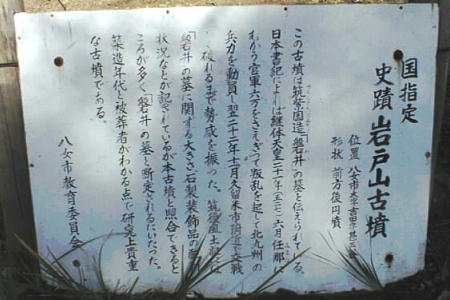 国指定
史蹟 岩戸山古墳
位置 八女市大字吉田字甚三谷
形状 前方後円墳
この古墳は筑紫国造「磐井」の墓と伝えられている。
日本書記によれば継体天皇二十一年(五二七)六月任那に
むかう官軍六万をさえぎって叛乱を起し北九州の
兵力を動員し翌二十二年十一月久留米市附近で交戦
破れるまで勢威を振った。筑後風土記に
「磐井」の墓に関する大きさ石製装飾品の
状況などが記されているが本古墳と照合できると
ころが多く「磐井」の墓と断定されるにいたった。
築造年代と被葬者がわかる点で研究上貴重
な古墳である。
八女市教育委員会